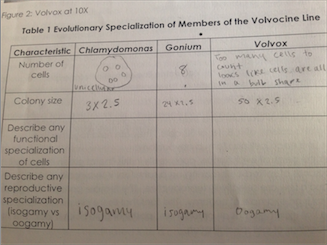 Figure 2: Volvox at 10X
Table 1 Evolutionary Specialization of Members of the Volvocine Line
Characteristic Chlamydomonas Gonium Volvox
Number of cells
unicellular
8
Too many cells to
count
looks like cells are all
in a bulb shape
Colony size 3X2.5 24X2.5 50 X2.5
Describe any
functional
specialization
of cells
Describe any
reproductive
specialization
(isogamy vs
oogamy)
isogamy isogamy Oogamy